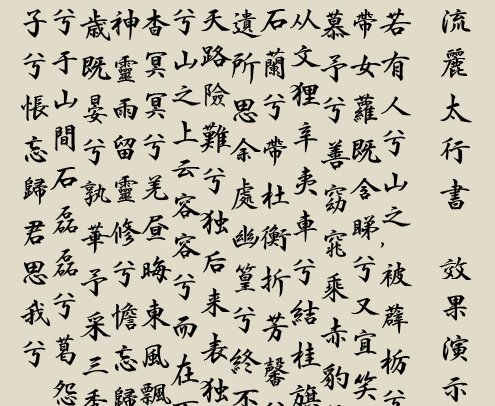 流麗太行書 效果演示
若有人兮山之,被薜枥兮
帶女蘿既含睇,兮又宜笑
慕予兮善窈窕乘赤豹
从文狸辛夷車兮結桂旗
石蘭兮帶杜衡折芳馨
遺所思余處幽篁兮終不
天路險難兮独后来表独
兮山之上云容容兮而在
杳冥冥兮羌昼晦東風飄
神靈雨留靈修兮憺忘歸
歳既晏兮孰華予采三秀
兮于山間石磊磊兮葛怨
子兮悵忘歸君思我兮